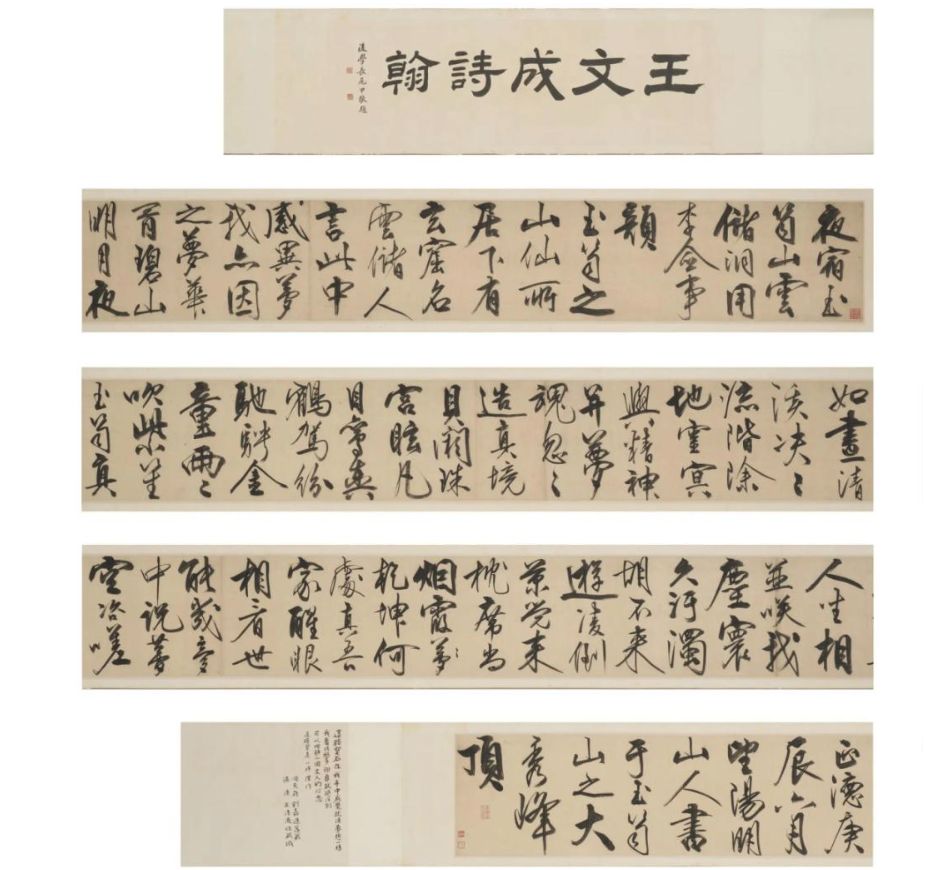 王文成詩翰
後學長尾甲敬題
夜宿玉
笥山雲
儲洞用
李僉事
韻
玉笥之
山仙所
居下有
玄窟名
雲儲人
言此中
感異夢
我亦因
之夢華
胥碧山
明月夜
如晝清
溪决〻
流階除
地靈冥
與精神
并夢
魂忽〻
造真境
貝闕珠
宮眩凡
目鸞輿
鶴駕紛
馳騁金
童兩〻
吹紫笙
玉笥真
人坐相
並笑我
塵寰
久污濁
胡不來
遊凌倒
景覺來
枕席尚
烟霞
乾坤何
處真吾
家醒眼
相看世
能幾夢
中說夢
空咨嗟
正德庚
辰六月
望陽明
山人書
于玉笥
山之大
秀峰
頂